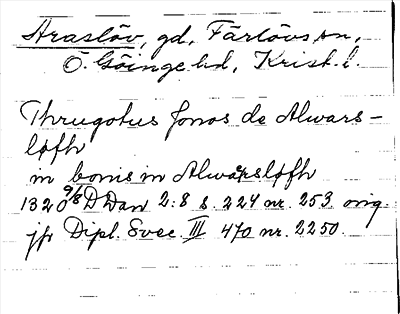 Araslöv, gd, Färlövs sn,
Ö. Göinge hd, Krist. l.
Thrugotus Jonos de Alwars-
løfh
in bonis in Alwarsløfh
1320 9/8 DDan 2:8 s. 224 nr. 253 orig.
jfr Dipl. Svec III 470 nr. 2250.